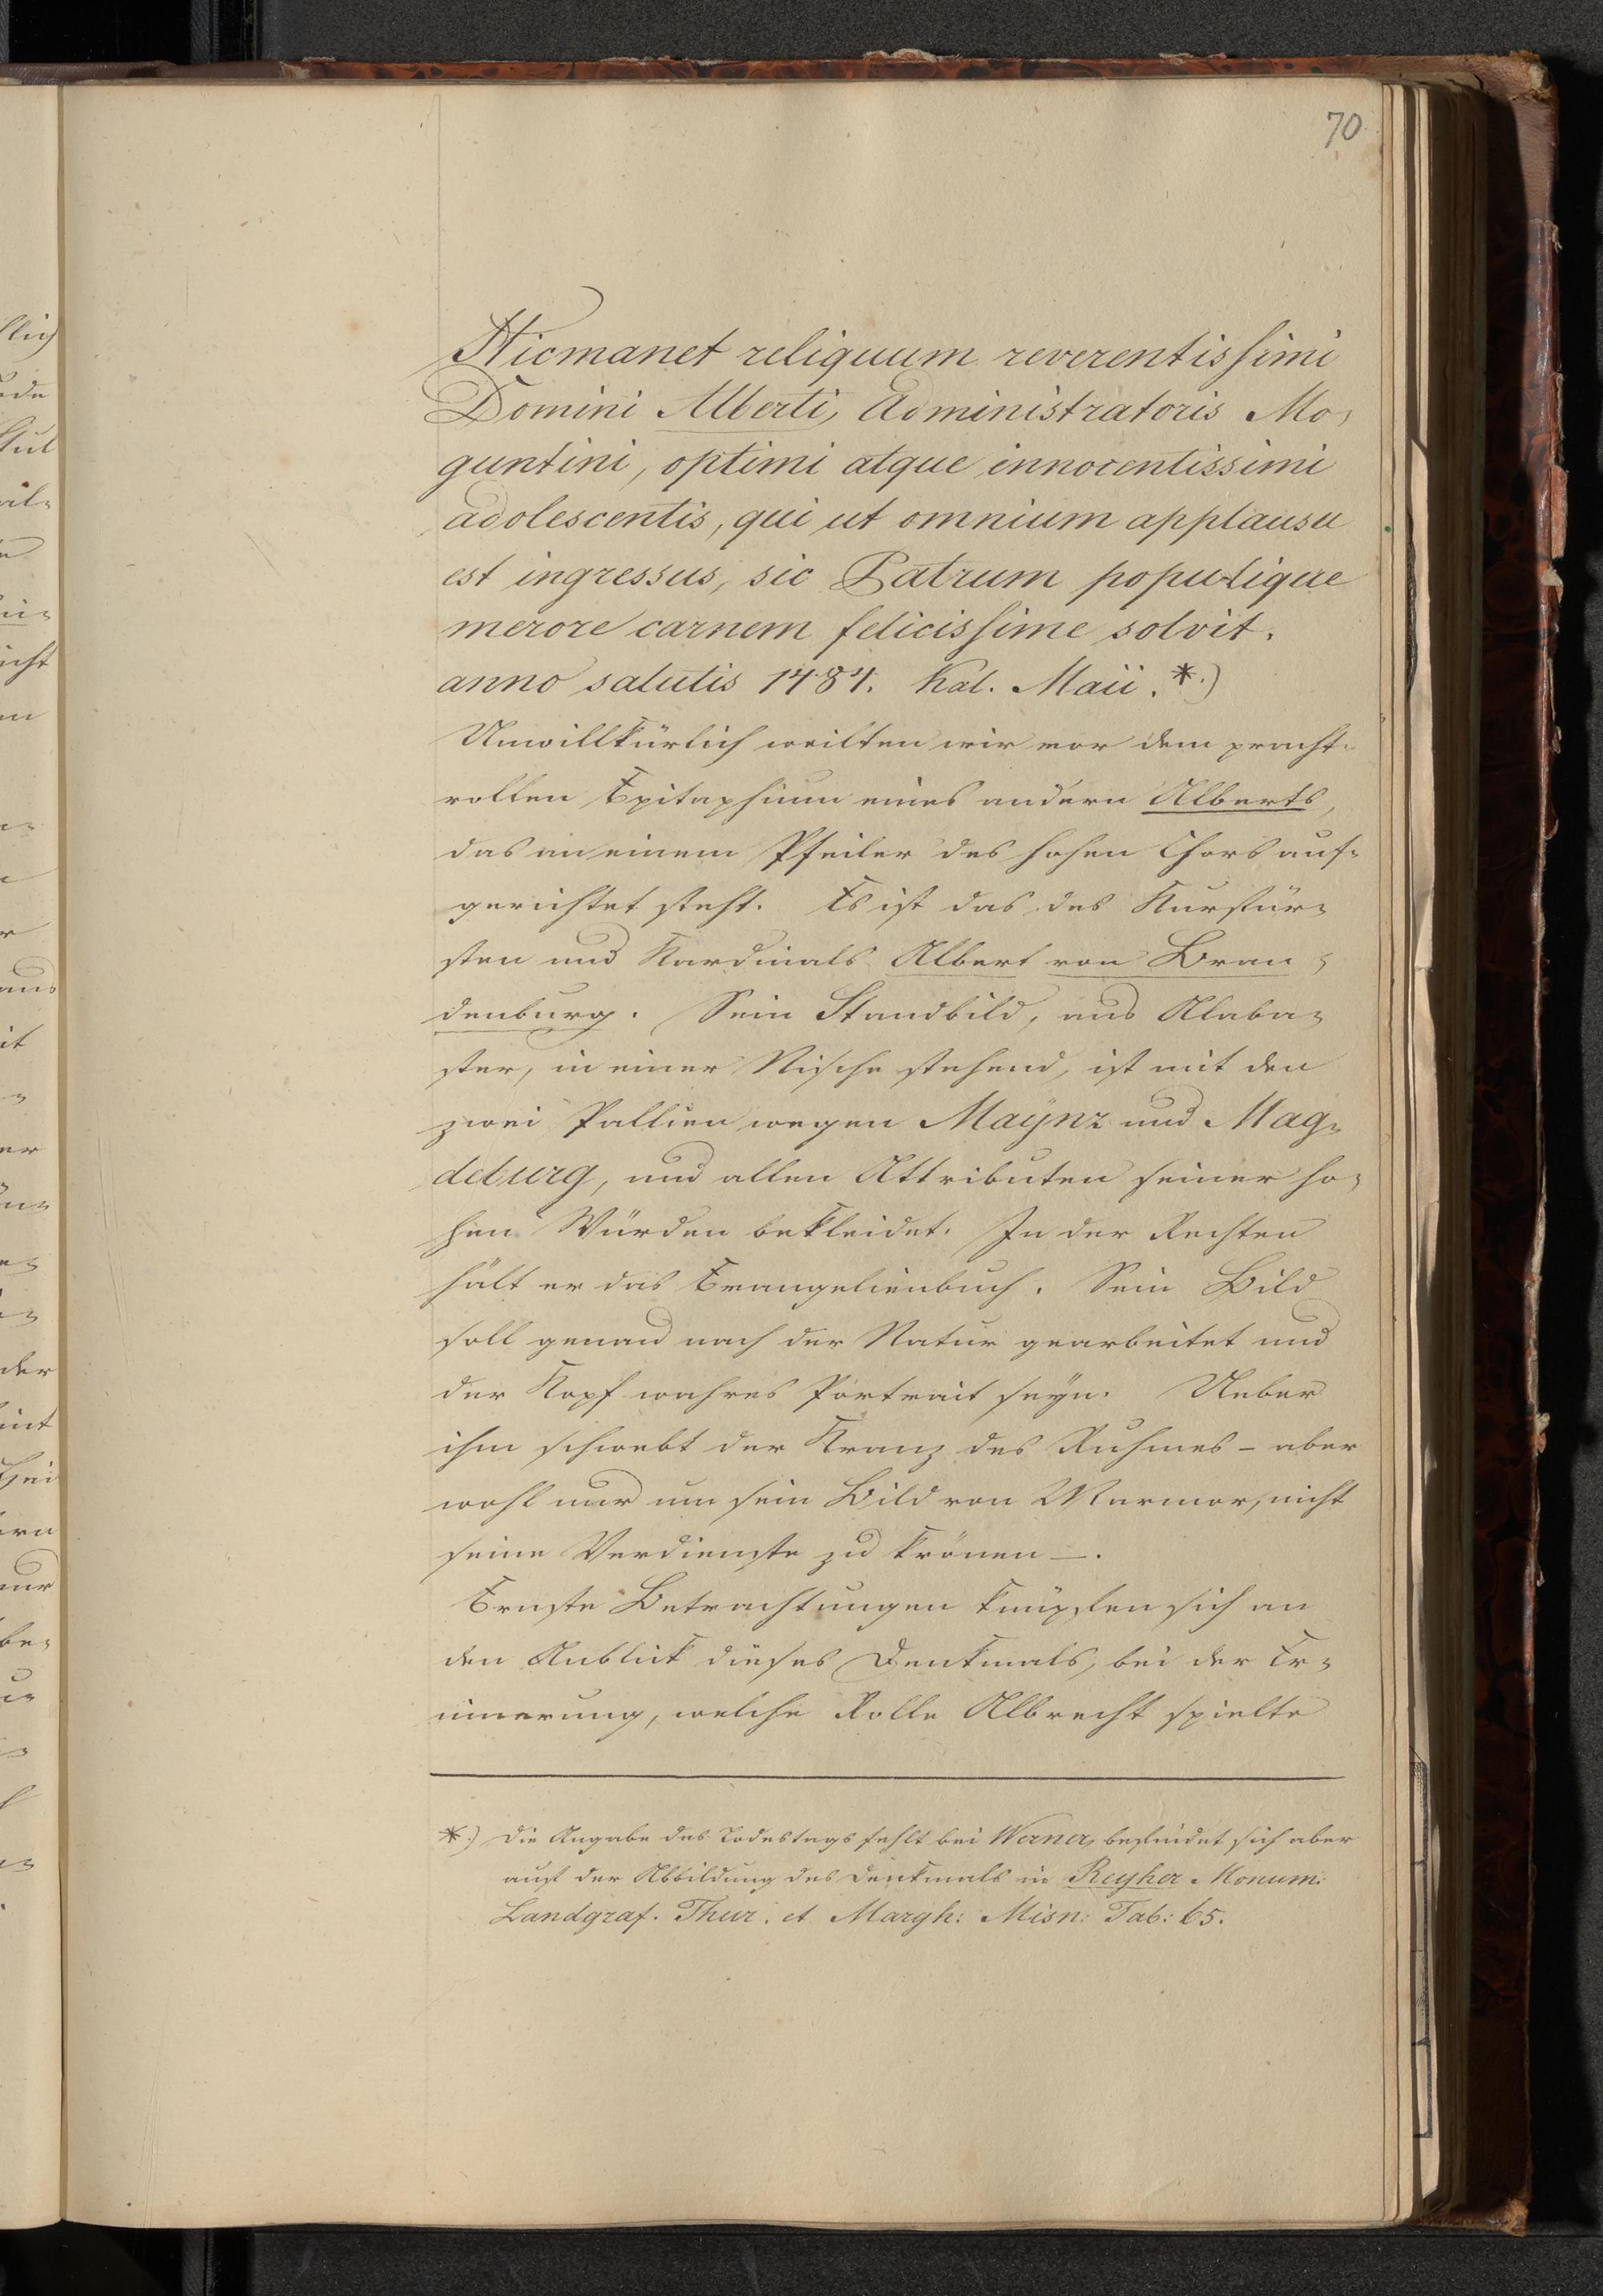 70
Hicmanet reliquum reverentissimi
Domini Alberti, Administratoris Mo-
guntini, optimi atque innocentissimi
adolescentis, qui ut omnium applausu
est ingressus, sic Patrum populique
merore carnem felicissime solvit.
anno salutis 1484. Kal. Maii. *.)
Unwillkürlich weilten wir vor dem pracht-
vollen Epitaphium eines andern Alberts,
das an einem Pfeiler des hohen Chors auf-
gerichtet steht. Es ist das des Kurfür-
sten und Kardinals Albert von Bran-
denburg. Sein Standbild, aus Alaba-
ster, in einer Nische stehend, ist mit den
zwei Pallien wegen Maÿnz und Mag-
deburg, und allen Attributen seiner ho-
hen Würden bekleidet. In der Rechten
hält er das Evangelienbuch. Sein Bild
soll genau nach der Natur gearbeitet und
der Kopf wahres Portrait seyn. Ueber
ihm schwebt der Kranz des Ruhmes – aber
wohl nur um sein Bild von Marmor, nicht
seine Verdienste zu krönen –.
Ernste Betrachtungen knüpfen sich an
den Anblick dieses Denkmals, bei der Er-
innerung, welche Rolle Albrecht spielte
*.) Die Angabe des Todestags fehlt bei Werner, befindet sich aber
auf der Abbildung des Denkmals in Reyher Monum:
Landgraf. Thur. et Margh: Misn: Tab: 65.